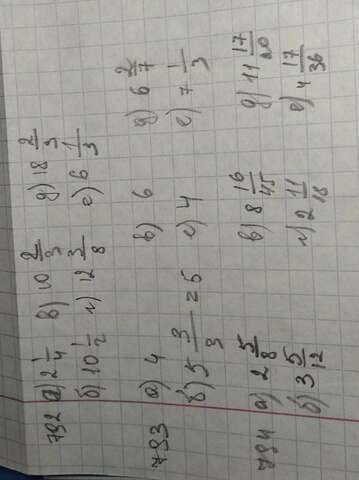 792 а) 2 1/4 в) 10 2/3 д) 18 2/3
б) 10 1/2 г) 12 3/8 е) 6 1/3
793 а) 4 в) 6 д) 6 2/7
б) 5 3/3 = 5 г) 4 е) 7 1/3
794 а) 2 5/8 в) 8 16/45 д) 11 17/20
б) 3 5/12 г) 2 11/16 е) 4 17/36